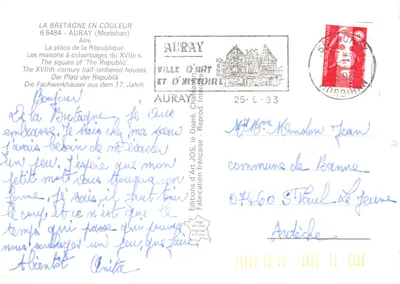 LA BRETAGNE EN COULEUR
6 6484 - AURAY (Morbihan)
La place de la République
Les maisons à colombages du XVIIe s.
The square of "The Republic".
The XVIIth-century half-timbered houses
Der Platz der Republik
Die Fachwerkhäuser aus dem 17. Jahrh
Bonjour
De la Bretagne, Je vous
embrasse, Je suis chez ma sœur
J'avais besoin de m'évader
un peu, J'espère que mon
petit mot vous trouvera en
forme, Je sais, il faut tenir
le coup, et ce n'est que le
temps qui passe qui pourra
nous soulager un peu, que faire
A bientôt Anita
Editions d'Art JOS, le Doaré, Chateaulin
Fabrication française - Reprod. Interdite
AURAY
VILLE D'ART
ET D'HISTOIRE
AURAY
25-6-93
MORBIHAN
Mr Mme Jean
commune de Banne
07460 St Paul Le Jeune
Ardèche